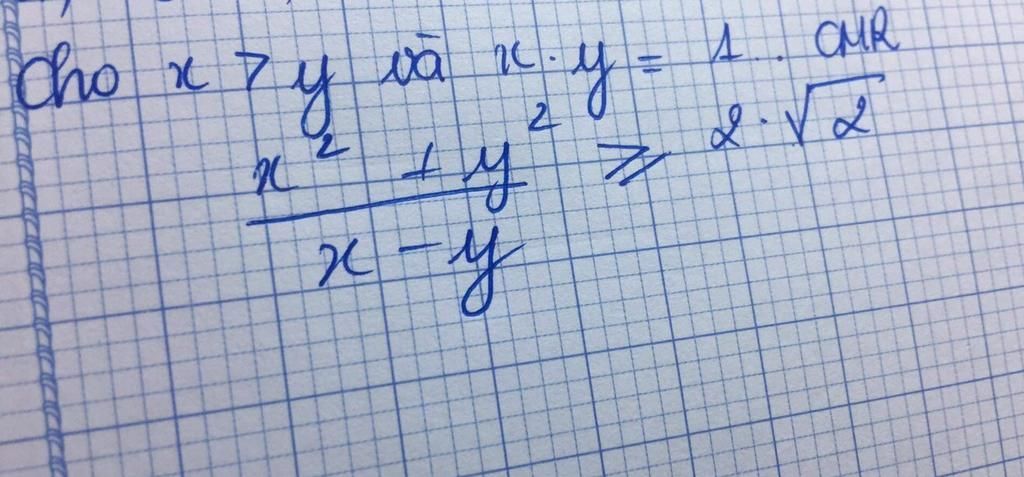 Cho x > y và x . y = 1 .. CMR
x² + y² ≥ 2 . √2
x - y